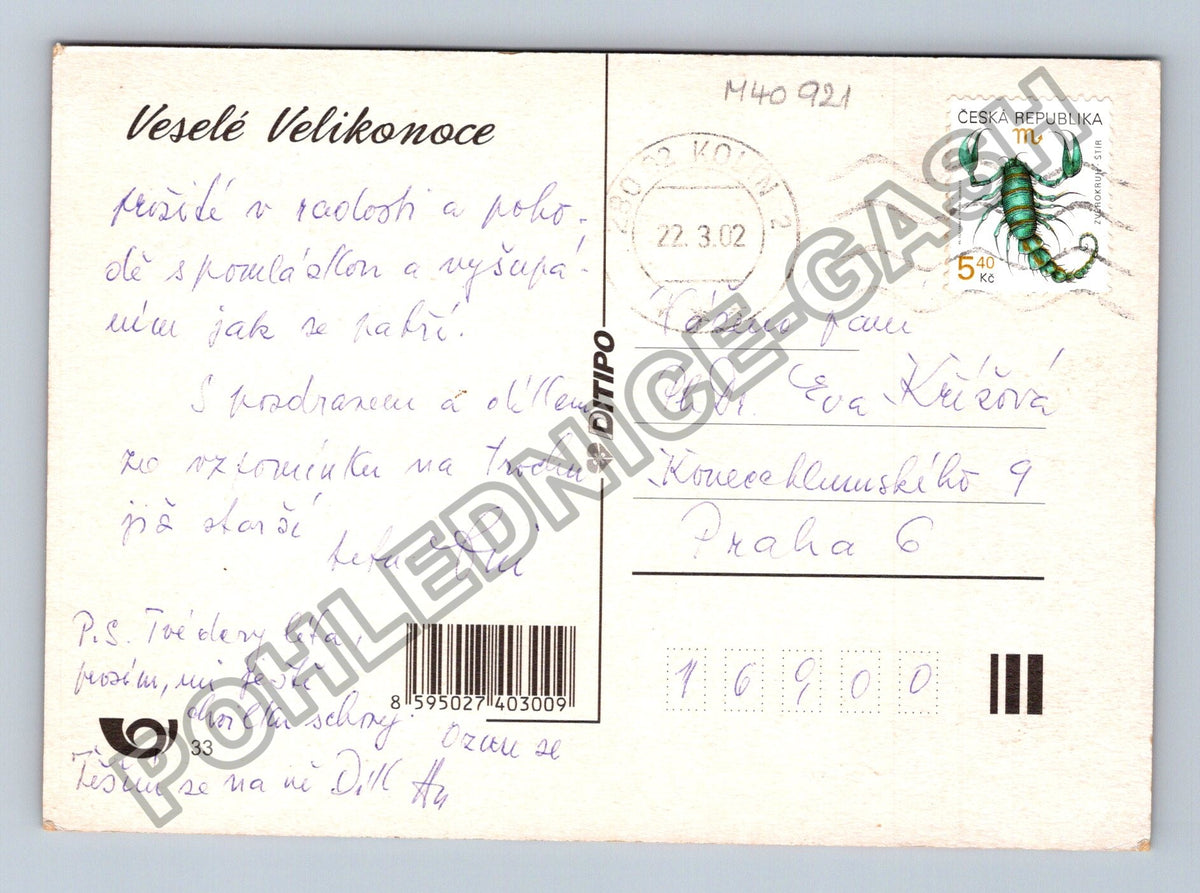 Veselé Velikonoce
prožité v radosti a poho-
dě s pomlázkou a vyšupá-
ním jak se patří.
S pozdravem a díkem
za vzpomínku na trochu
již starší
tetu
P.S. Tvé dary léta,
prosím, mi ještě
chvilku schovej. Ozvu se
Těším se na ně Dík
DITIPO
8 595027 403009
33
M40 921
280 02 KOLÍN 2
22. 3.02
ČESKÁ REPUBLIKA
ZVĚROKRUH - ŠTÍR
5 40
Kč
Vážená paní
PhDr. Eva Křížová
Konecchlumského 9
Praha 6
16900
POHLEDNICE-GASH